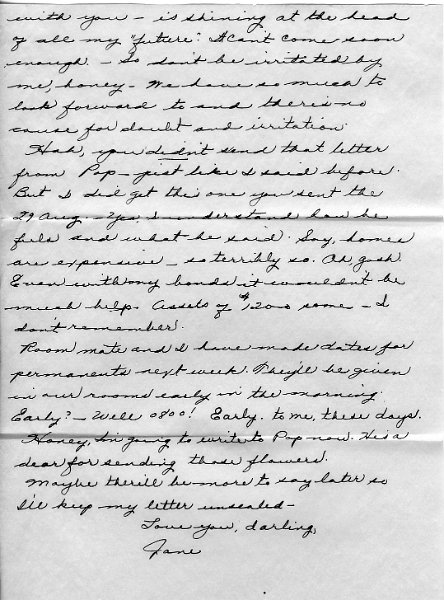 with you - is shining at the head
of all my "future". It can't come soon
enough. - So don't be irritated by
me, honey - We have so much to
look forward to and there is no
cause for doubt and irritation.
Hah, you didn't send that letter
from Pop - just like I said before.
But I did get the one you sent the
29 Aug. - Yes, I understand how he
feels and what he said. Say, homes
are expensive - so terribly so. Oh, gosh
Even with my bonds it wouldn't be
much help. Assets of $1200 some - I
don't remember.
Room mate and I have made dates for
permanents next week. They'll be given
in our rooms early in the morning.
Early? - Well 0800! Early. to me, these days.
Honey, I'm going to write to Pop now. He's a
dear for sending those flowers.
Maybe there'll be more to say later so
I'll keep my letter unsealed -
Love you, darling,
Jane